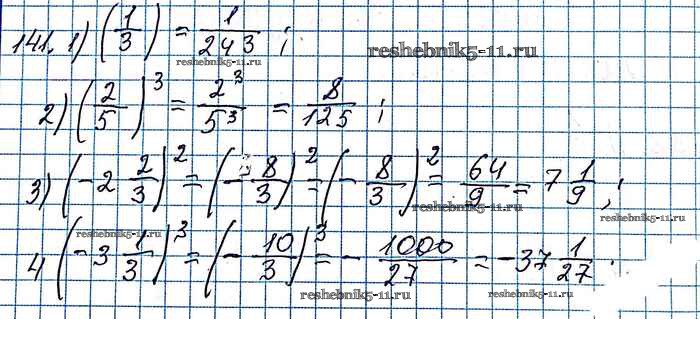 141. 1) (1/3) = 1/243 ;
reshebnik5-11.ru
reshebnik5-11.ru
2) (2/5)^3 = 2^3/5^3 = 8/125 ;
3) (-2 2/3)^2 = (-8/3)^2 = (-8/3)^2 = 64/9 = 7 1/9 ;
reshebnik5-11.ru
reshebnik5-11.ru
4 (-3 1/3)^3 = (-10/3)^3 = -1000/27 = -37 1/27 .
reshebnik5-11.ru
reshebnik5-11.ru
reshebnik5-11.ru